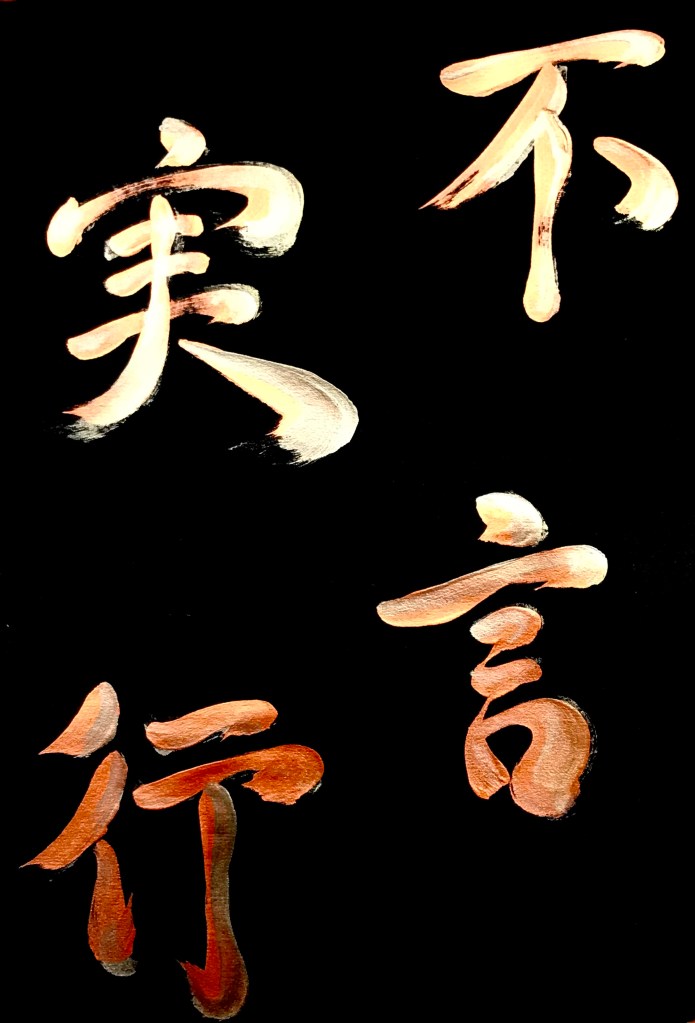 不言
実行